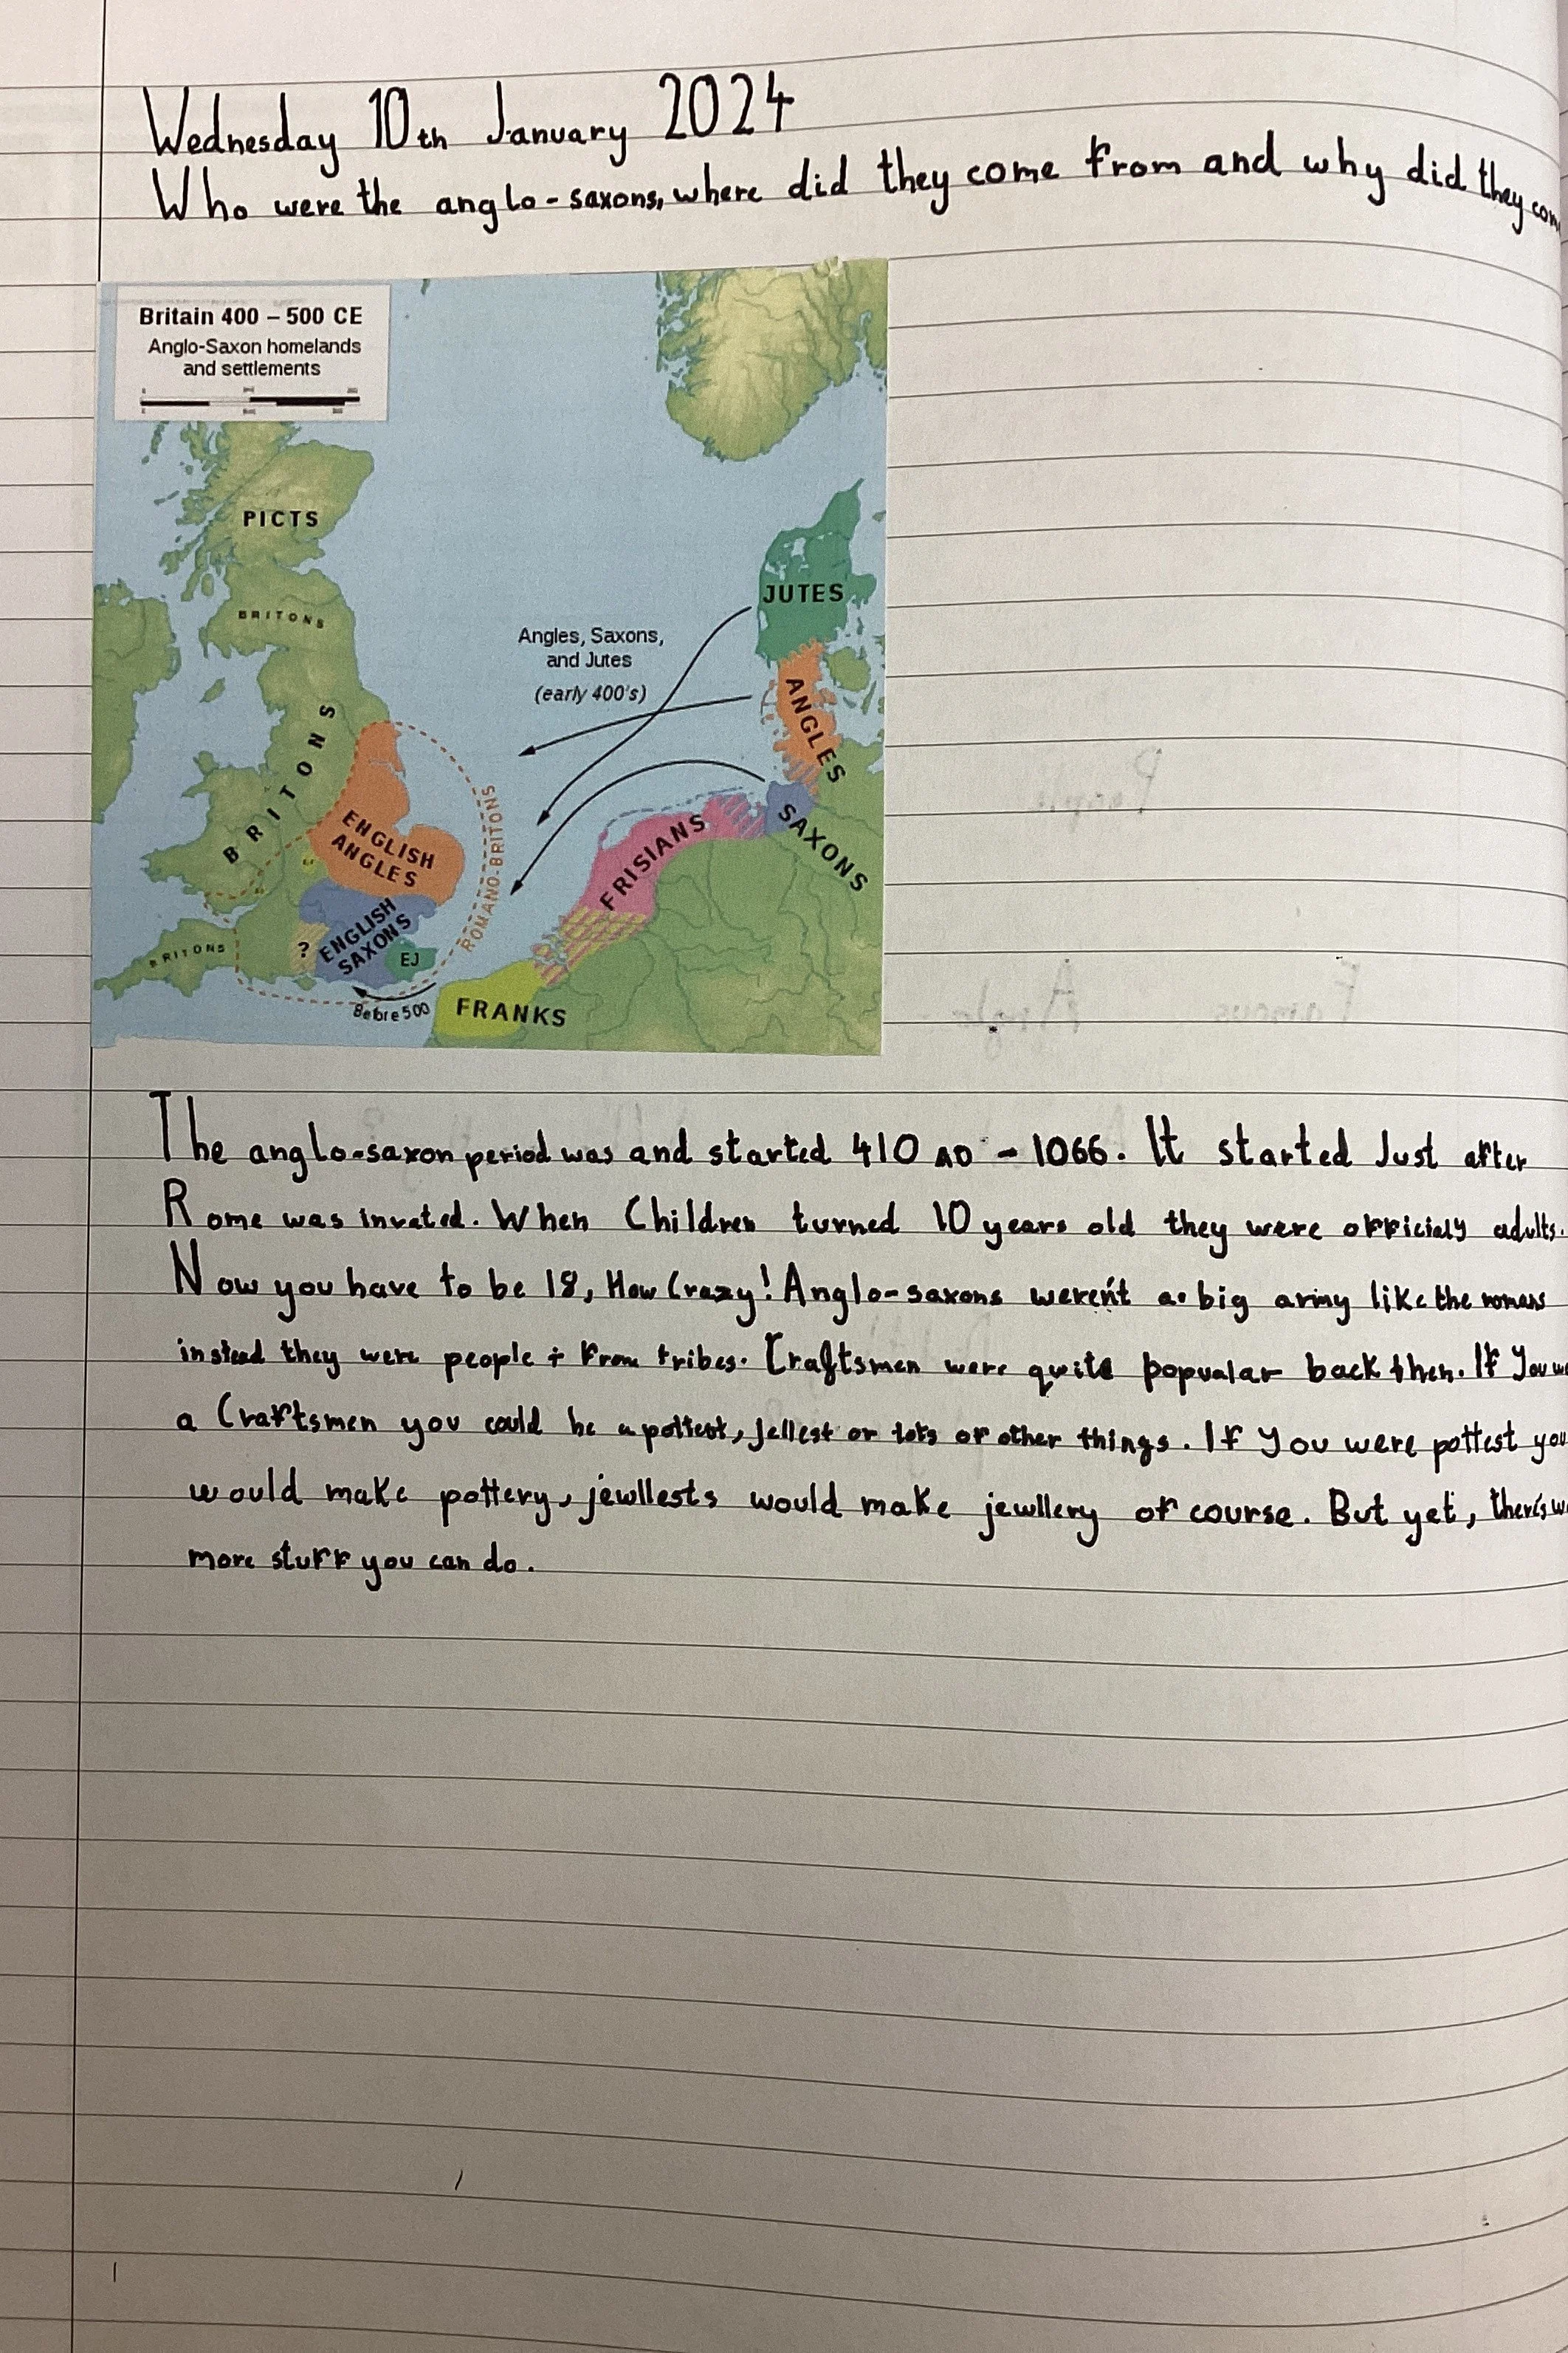 Wednesday 10th January 2024
Who were the anglo-saxons, where did they come from and why did they com
Britain 400 – 500 CE
Anglo-Saxon homelands
and settlements
PICTS
BRITONS
JUTES
Angles, Saxons,
and Jutes
(early 400's)
ANGLES
BRITONS
ENGLISH
ANGLES
ROMANO-BRITONS
SAXONS
FRISIANS
BRITONS
?
ENGLISH
SAXONS
EJ
Before 500
FRANKS
People
Famous Anglo
The anglo-saxon period was and started 410 AD - 1066. It started Just after
Rome was invated. When Children turned 10 years old they were officialy adults.
Now you have to be 18, How Crazy! Anglo-saxons weren't a big army like the romans
instead they were people from tribes. Craftsmen were quite popualar back then. If You we
a Craftsmen you could be a pottest, jellest or lots of other things. If you were pottest you
would make pottery, jewllests would make jewllery of course. But yet, there's w
more stuff you can do.